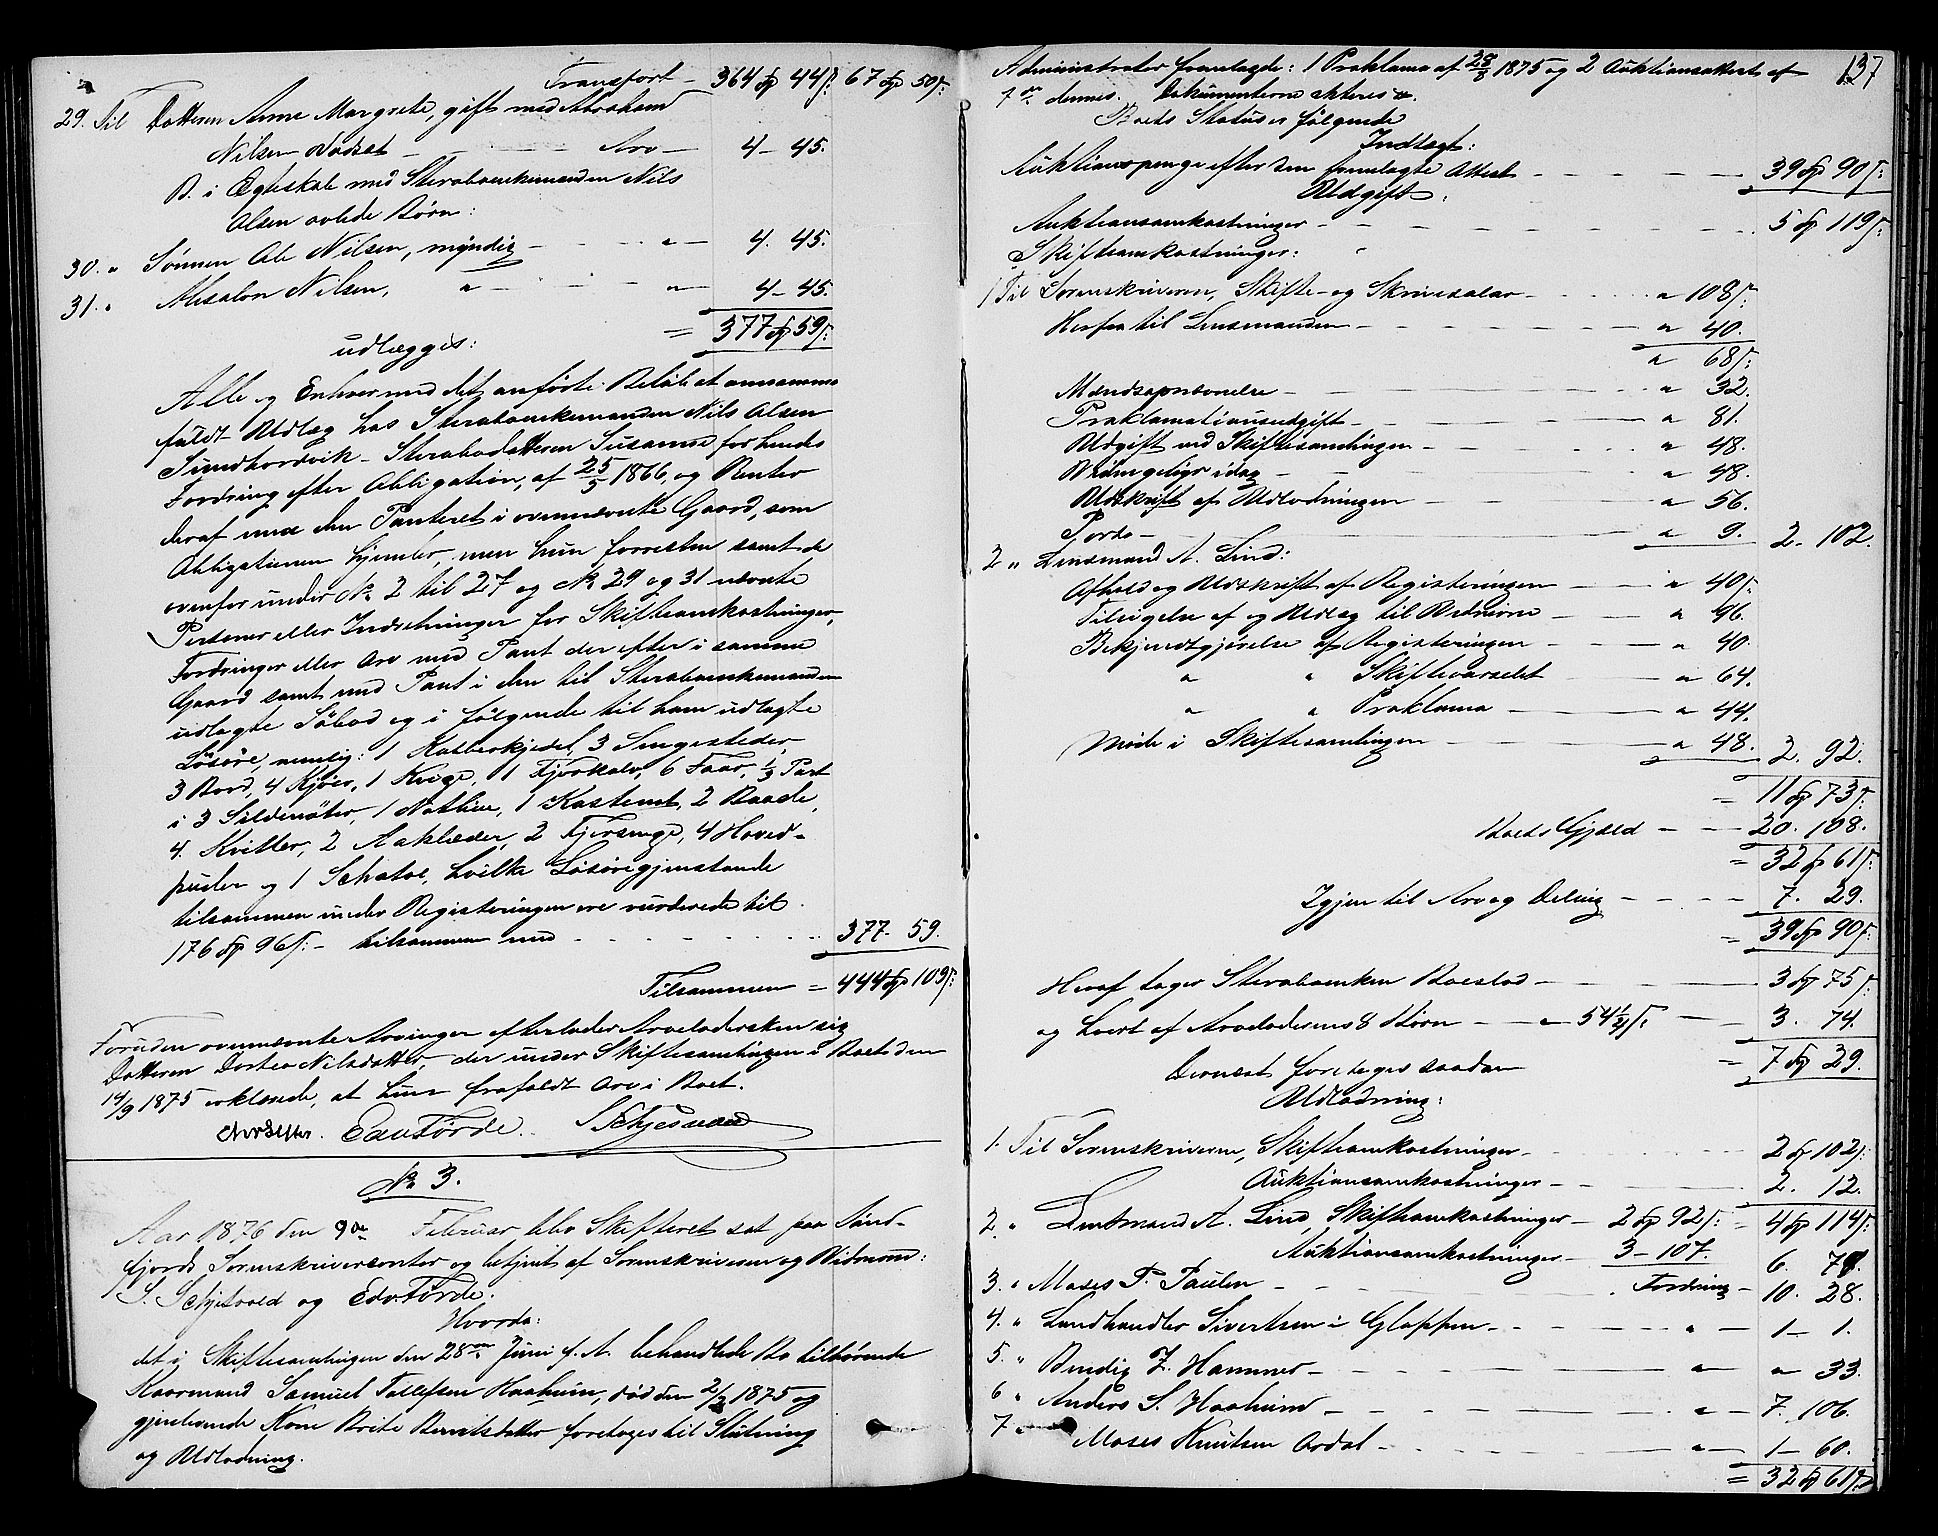 Transport — 364 Sp 44 s: 67 Sp 50 s:
29. Til Datteren Anne Margrete, gift med Abraham
Nilsen Nodset — Arv — 4 — 45.
B. i Egteskab med Stervboenkemanden Nils
Olsen avlede Børn:
30. " Sønnen Ole Nilsen, myndig — " — 4. 45.
31. " Absalon Nilsen, " — " — 4 — 45.
= 377 Sp 59 s:
udlægges:
Alle og Enhver med det anførte Beløb at annamme
fuldt Udlæg hos Stervboenkemanden Nils Olsen
Sundhordvik – Stervbodatteren Susanne for hendes
Fordring efter Obligation, af 25/5 1866, og Renter
deraf med den Panteret i ovennævnte Gaard, som
Obligationen hjemler, men hun forresten samt de
ovenfor under No 2 til 27 og No 29 og 31 nævnte
Personer eller Indretninger for Skifteomkostninger,
Fordringer eller Arv med Pant der efter i samme
Gaard samt med Pant i den til Stervboenkemanden
udlagte Søbod og i følgende til ham udlagte
Løsøre, nemlig: 1 Kobberkjedel, 3 Sengesteder,
3 Bord, 4 Kjøer, 1 Kvige, 1 Fjorkalv, 6 Faar, 1/3 Part
i 3 Sildenøter, 1 Notline, 1 Kastenot, 2 Baade,
4. Kvitler, 2 Aaklæder, 2 Fjersenge, 4 Hoved-
puder og 1 Schatol, hvilke Løsøregjenstande
tilsammen under Registeringen ere vurderede til
176 Sp 96 s: – tilsammen med — 377. 59.
Tilsammen = 444 Sp 109 s:
Foruden ovennævnte Arvinger efterlader Arveladersken sig
Datteren Dortea Nilsdatter, der under Skiftesamlingen i Boet den
14/9 1875 erklærede, at hun frafaldt Arv i Boet.
Edv Førde. S Schjesvold
No 3.
Aar 1876 den 9de Februar blev Skifteret sat paa Sønd-
fjords Sorenskrivercontor og betjent af Sorenskriveren og Vidnerne:
S. Schjesvold og Edv Førde.
Hvorda:
det i Skiftesamlingen den 28de Juni f. A. behandlede Bo tilhørende
Kaarmand Samuel Tollefsen Haaheim, død den 2/2 1875 og
gjenlevende Kone Brite Berntsdatter foretoges til Slutning
og Udlodning.
137
Administrator fremlagde: 1 Proklama af 28/8 1875 og 2 Auktionsattest af
7de dennes. Dokumenterne akteres.
Boets Status er følgende
Indtægt:
Auktionspenge efter den fremlagte Attest — 39 Sp 90 s:
Udgift:
Auktionsomkostninger — 5 Sp 119 s:
Skifteomkostninger:
1 Til Sorenskriveren, Skifte- og Skriversalar — " 108 s:
Herfra til Lensmanden — " 40.
" 68 s:
Mændsopnævnelse — " 32.
Proklamationsudgift — " 81.
Udgift ved Skiftesamlingen — " 48.
Vidnegebyr idag — " 48.
Udskrift af Udlodningen — " 56.
Porto — " 9. 2. 102.
2 " Lensmand A. Lind:
Afhold og Udskrift af Registeringen — " 40 s:
Tilsigelse af og Udlæg til Vidnerne — " 96.
Bekjendtgjørelse af Registeringen — " 40.
" " Skiftevarselet — " 64.
" " Proklama — " 44.
Møde i Skiftesamlingen — " 48. 2. 92.
= 11 Sp 73 s:
Boets Gjæld — 20. 108.
= 32 Sp 61 s:
Igjen til Arv og Deling — 7. 29.
= 39 Sp 90 s:
Heraf tager Stervboenken Boeslod — 3 Sp 75 s:
og hvert af Arveladerens 8 Børn — " 54 1/4 s: — 3. 74.
= 7 Sp 29.
Dernæst foretoges saadan
Udlodning:
1. Til Sorenskriveren, Skifteomkostninger — 2 Sp 102 s:
Auktionsomkostninger — 2. 12.
2. " Lensmand A. Lind, Skifteomkostninger — 2 Sp 92 s: = 4 Sp 114 s:
Auktionsomkostninger — 3 — 107. 6. 79.
3. " Moses P. Paulen — Fordring — 10. 28.
4. " Landhandler Sivertsen i Gloppen — " — 1 — 1.
5. " Bendig Z. Hammer — " " 33.
6 " Anders S. Haaheim — " — 7. 106.
7 " Moses Knutsen Ardal — " — 1 — 60.
= 32 Sp 61 s: